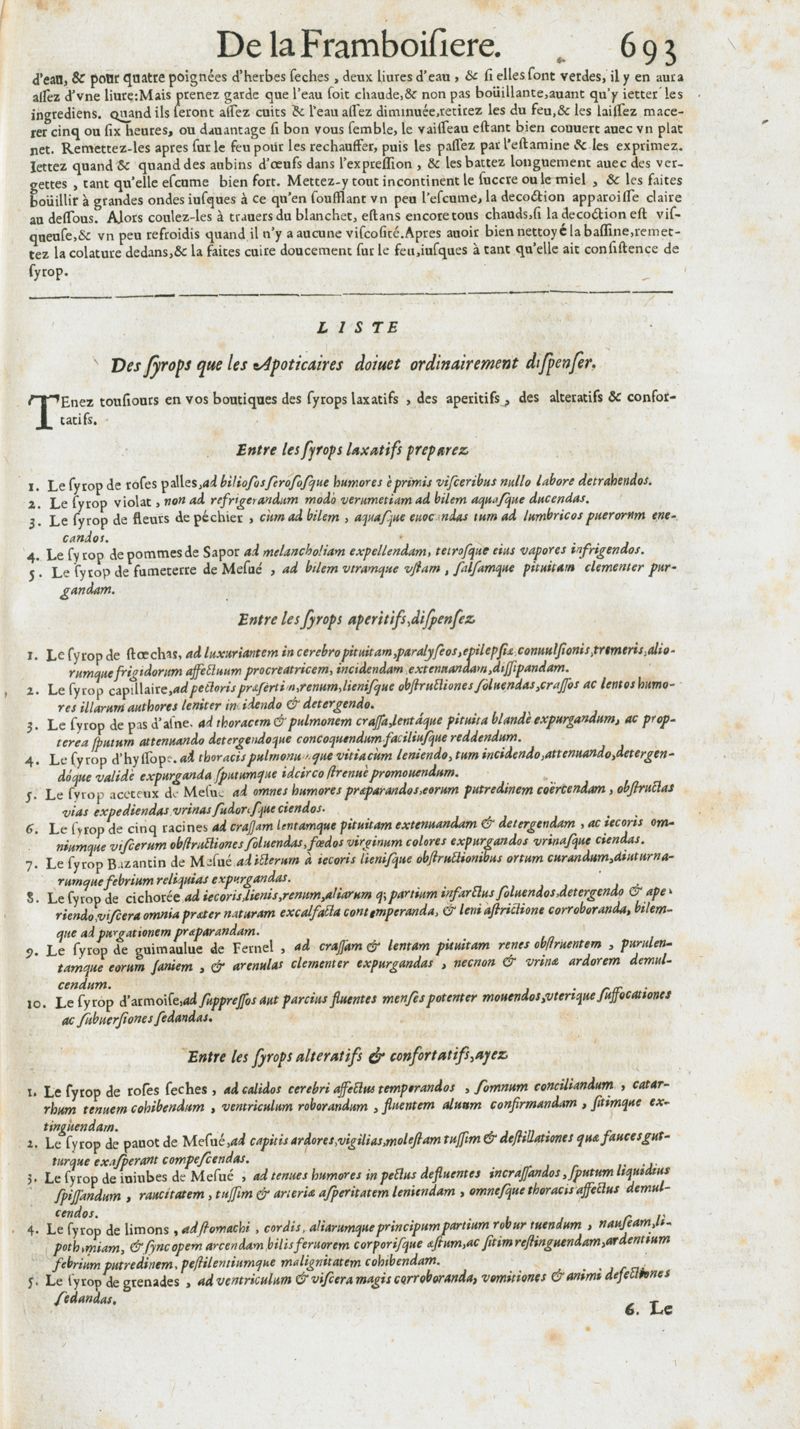 De la Framboiſiere. 693
d'eau, & pour quatre poignées d'herbes ſeches, deux liures d'eau, & ſi elles ſont verdes, il y en aura
aſſez d'vne liure: Mais prenez garde que l'eau ſoit chaude, & non pas boüillante, auant qu'y ietter les
ingrediens. Quand ils ſeront aſſez cuits & l'eau aſſez diminuée, retirez les du feu, & les laiſſez mace-
rer cinq ou ſix heures, ou dauantage ſi bon vous ſemble, le vaiſſeau eſtant bien couuert auec vn plat
net. Remettez-les apres ſur le feu pour les rechauffer, puis les paſſez par l'eſtamine & les exprimez.
Iettez quand & quand des aubins d'œufs dans l'expreſſion, & les battez longuement auec des ver-
gettes, tant qu'elle eſcume bien fort. Mettez-y tout incontinent le ſuccre ou le miel, & les faites
boüillir à grandes ondes iuſques à ce qu'en ſoufflant vn peu l'eſcume, la decoction apparoiſſe claire
au deſſous. Alors coulez-les à trauers du blanchet, eſtans encore tous chauds, ſi la decoction eſt viſ-
queuſe, & vn peu refroidis quand il n'y a aucune viſcoſité. Apres auoir bien nettoyé la baſſine, remet-
tez la colature dedans, & la faites cuire doucement ſur le feu, iuſques à tant qu'elle ait conſiſtence de
ſyrop.
LISTE
Des ſyrops que les Apoticaires doiuet ordinairement diſpenſer.
TEnez touſiours en vos boutiques des ſyrops laxatifs, des aperitifs, des alteratifs & confor-
tatifs.
Entre les ſyrops laxatifs preparez
1. Le ſyrop de roſes palles, ad bilioſos ſeroſoſque humores è primis viſceribus nullo labore detrahendos.
2. Le ſyrop violat, non ad refrigerandum modò verumetiam ad bilem aquaſque ducendas.
3. Le ſyrop de fleurs de péchier, cùm ad bilem, aquaſque euocandas tum ad lumbricos puerorum ene-
candos.
4. Le ſyrop de pommes de Sapor ad melancholiam expellendam, tetroſque eius vapores infrigendos.
5. Le ſyrop de fumeterre de Meſué, ad bilem vtramque vſtam, ſalſamque pituitam clementer pur-
gandam.
Entre les ſyrops aperitifs, diſpenſez
1. Le ſyrop de ſtœchas, ad luxuriantem in cerebro pituitam, paralyſeos, epilepſiæ, conuulſionis, tremeris, alio-
rumque frigidorum affectuum procreatricem, incidendam, extenuandam, diſſipandam.
2. Le ſyrop capillaire, ad pectoris præſertim, renum, lieniſque obſtructiones ſoluendas, craſſos ac lentos humo-
res illarum authores leniter incidendo & detergendo.
3. Le ſyrop de pas d'aſne, ad thoracem & pulmonem craſſa, lentáque pituita blandè expurgandum, ac prop-
terea ſputum attenuando detergendoque concoquendum faciliuſque reddendum.
4. Le ſyrop d'hyſſope, ad thoracis pulmonumque vitia cùm leniendo, tum incidendo, attenuando, detergen-
dóque validè expurganda ſputumque idcirco ſtrenuè promouendum.
5. Le ſyrop aceteux de Meſué ad omnes humores præparandos, eorum putredinem coërcendam, obſtructas
vias expediendas vrinas ſudoreſque ciendos.
6. Le ſyrop de cinq racines ad craſſam lentamque pituitam extenuandam & detergendam, ac iecoris om-
niumque viſcerum obſtructiones ſoluendas, fœdos virginum colores expurgandos vrinaſque ciendas.
7. Le ſyrop Bizantin de Meſué ad icterum à iecoris lieniſque obſtructionibus ortum curandum, diuturna-
rumque febrium reliquias expurgandas.
8. Le ſyrop de cichorée ad iecoris, lienis, renum, aliarum q; partium infarctus ſoluendos, detergendo & ape-
riendo, viſcera omnia præter naturam excalfacta contemperanda, & leni aſtrictione corroboranda, bilem-
que ad purgationem præparandam.
9. Le ſyrop de guimaulue de Fernel, ad craſſam & lentam pituitam renes obſtruentem, purulen-
tamque eorum ſaniem, & arenulas clementer expurgandas, necnon & vrinæ ardorem demul-
cendum.
10. Le ſyrop d'armoiſe, ad ſuppreſſos aut parcius fluentes menſes potenter mouendos, vterique ſuffocationes
ac ſubuerſiones ſedandas.
Entre les ſyrops alteratifs & confortatifs, ayez
1. Le ſyrop de roſes ſeches, ad calidos cerebri affectus temperandos, ſomnum conciliandum, catar-
rhum tenuem cohibendum, ventriculum roborandum, fluentem aluum confirmandam, ſitimque ex-
tinguendam.
2. Le ſyrop de pauot de Meſué, ad capitis ardores, vigilias, moleſtam tuſſim & deſtillationes quæ fauces gut-
turque exaſperant compeſcendas.
3. Le ſyrop de iuiubes de Meſué, ad tenues humores in pectus defluentes incraſſandos, ſputum liquidius
ſpiſſandum, raucitatem, tuſſim & arteriæ aſperitatem leniendam, omneſque thoracis affectus demul-
cendos.
4. Le ſyrop de limons, ad ſtomachi, cordis, aliarumque principum partium robur tuendum, nauſeam, li-
pothymiam, & ſyncopem arcendam bilis feruorem corporiſque æſtum, ac ſitim reſtinguendam, ardentium
febrium putredinem, peſtilentiumque malignitatem cohibendam.
5. Le ſyrop de grenades, ad ventriculum & viſcera magis corroboranda, vomitiones & animi defectiones
ſedandas.
6. Le